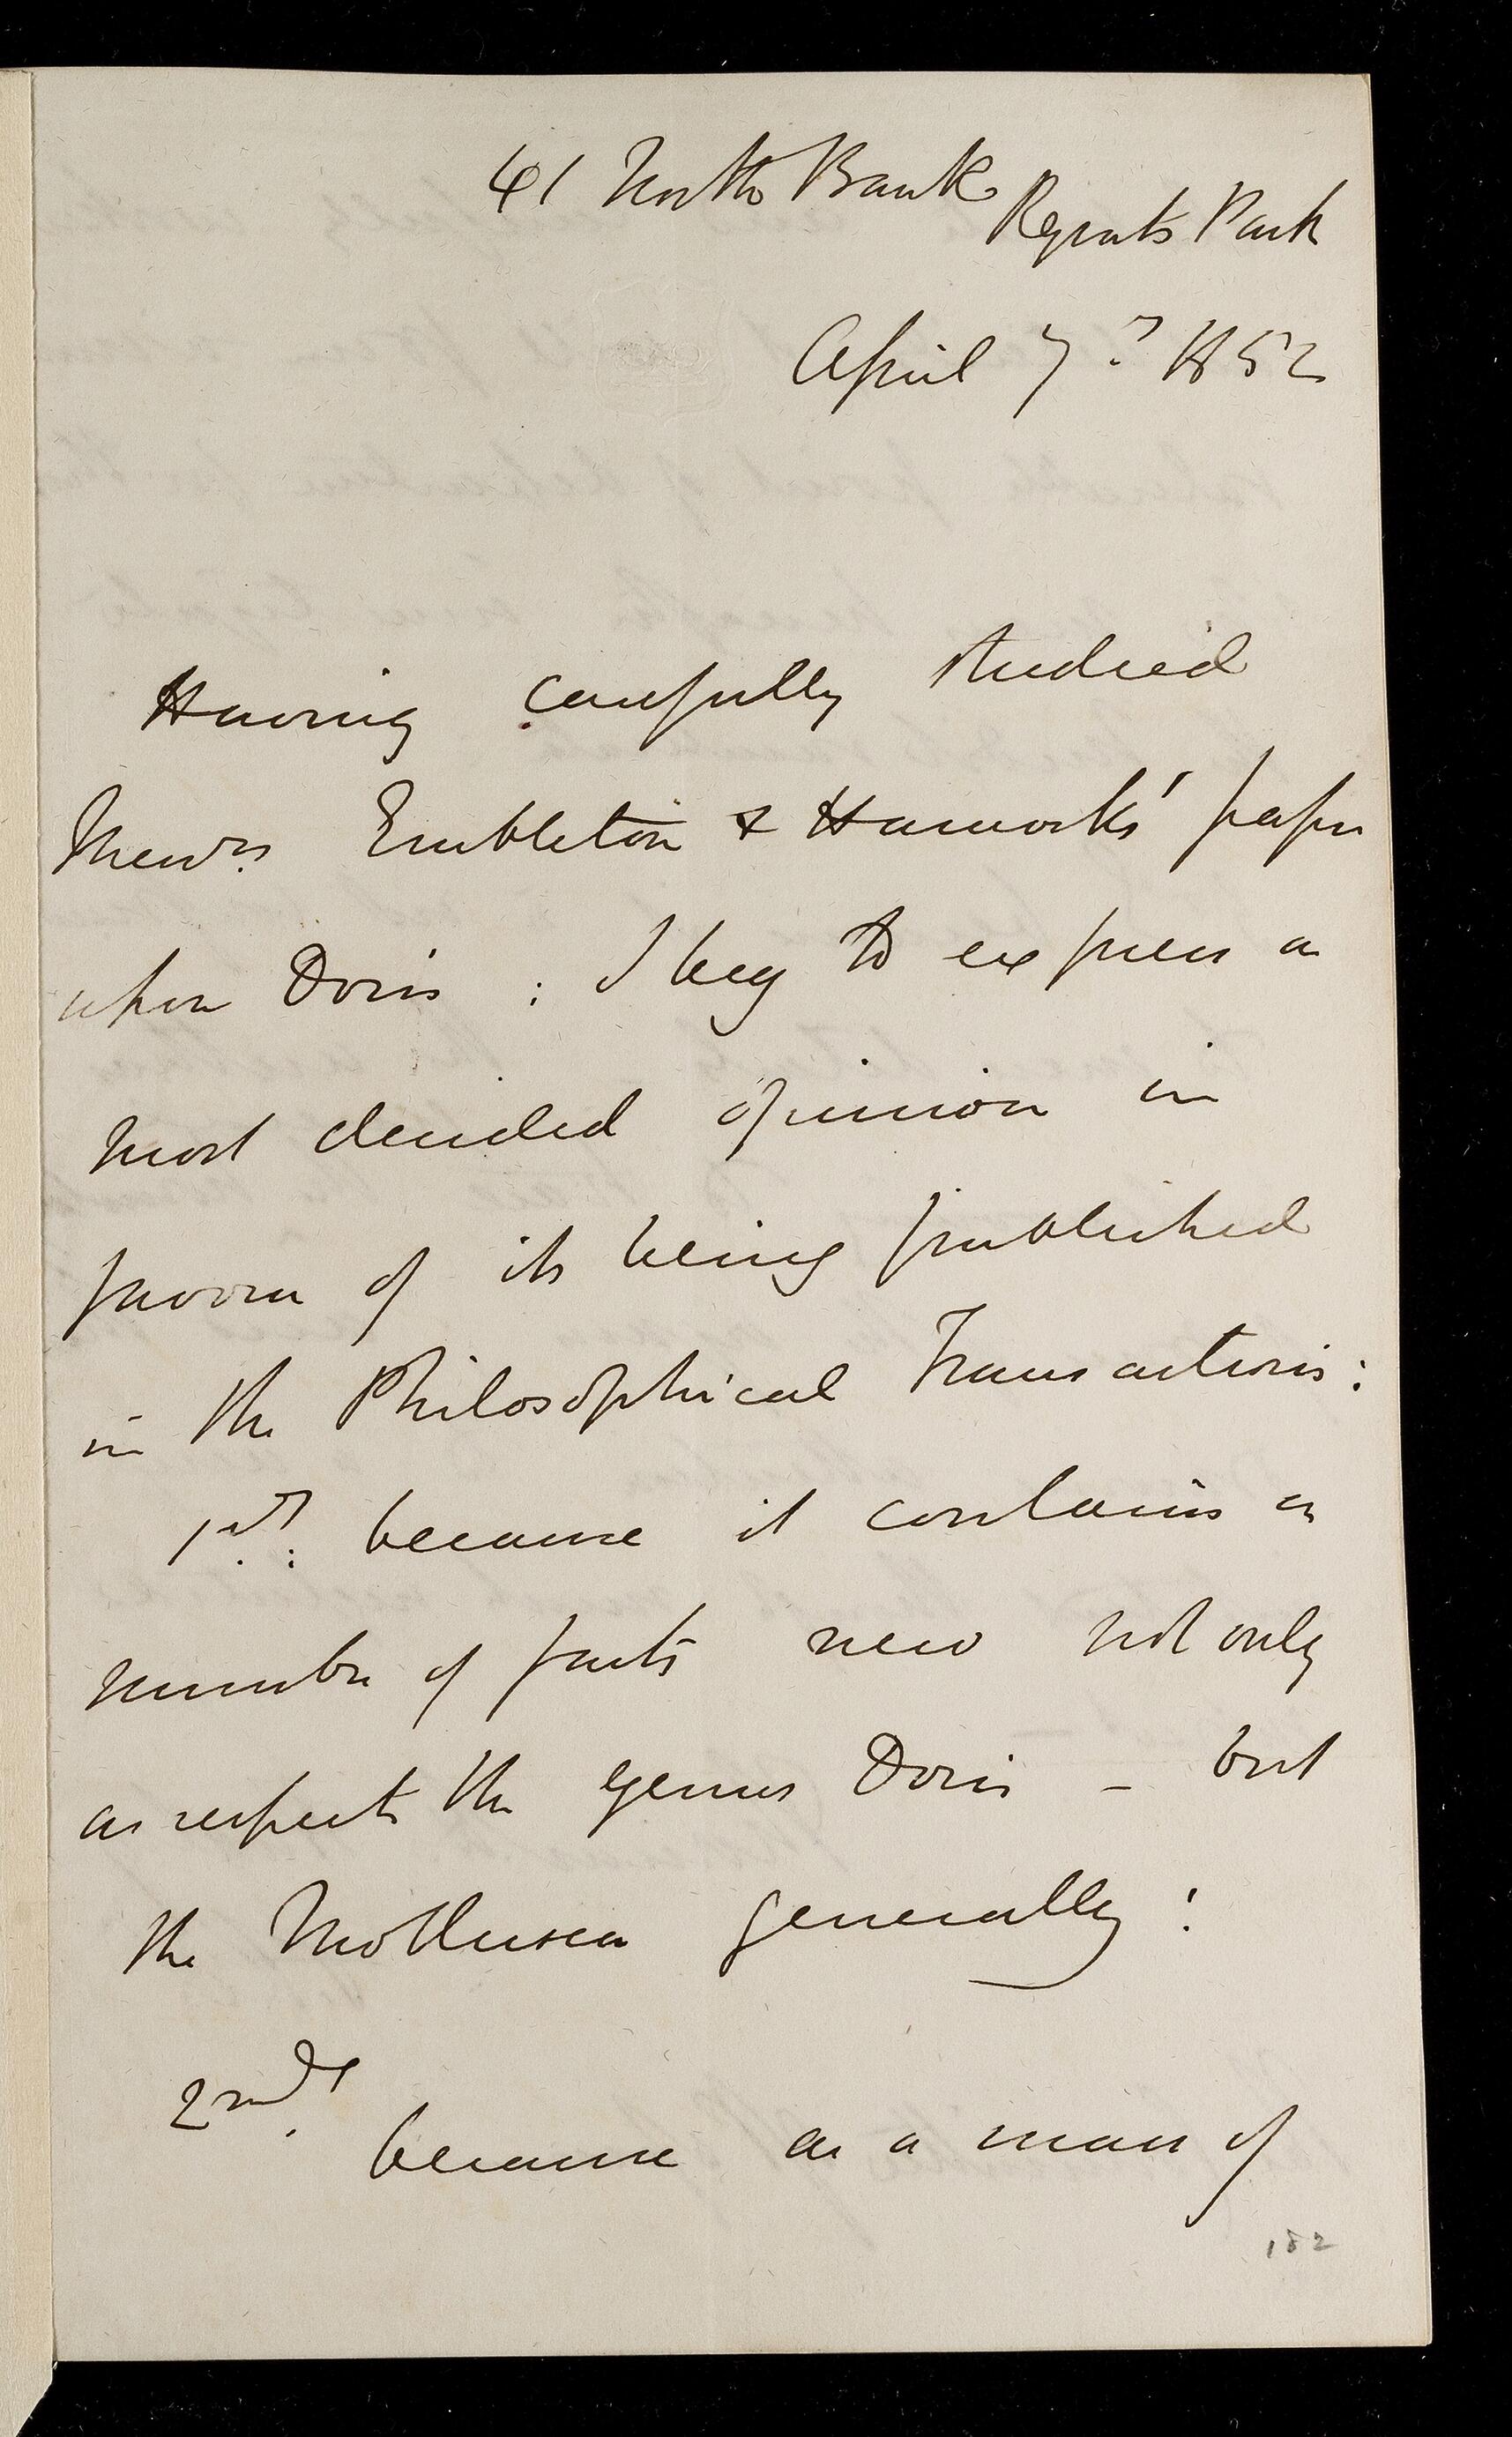 41 North Bank
Regents Park
April 7th 1852
Having carefully studied
Messrs Embleton & Hancock's paper
upon Doris : I beg to express a
most decided opinion in
favour of its being published
in the Philosophical Transactions :
1st : because it contains a
number of facts new not only
as respects the genus Doris – but
the Mollusca generally :
2ndly because as a mass of
182